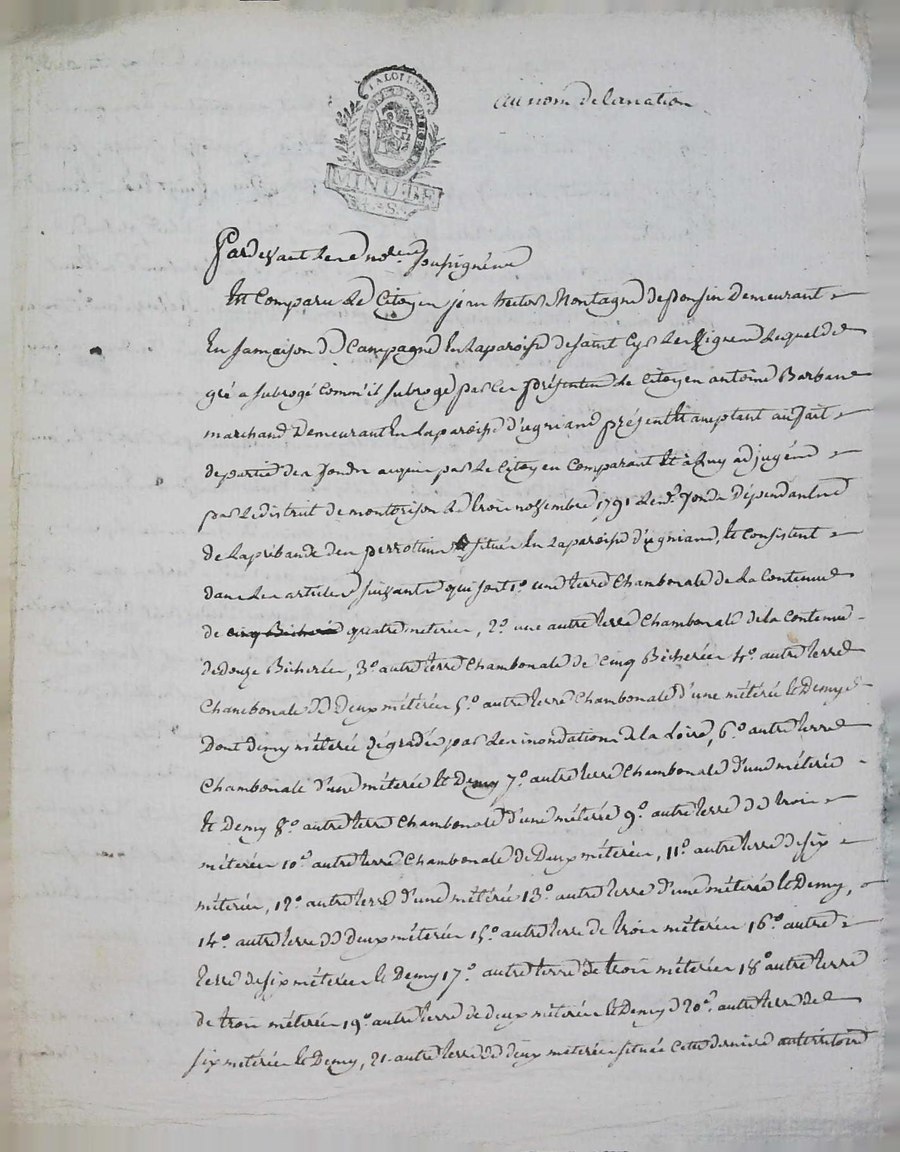 LA LOI LE ROI
MINUTE
4 S.
au nom de la nation
Pardevant les no.res soussignés
Est Comparu Le Citoyen jean hector Montagne de Poncin Demeurant
En sa maison de Campagne En la paroisse de saint Cyr Les Vignes Lequel de
gré a subrogé Comm'il subroge par Ces présentes Le Citoyen antoine Barban
marchand Demeurant En la paroisse d'ugniand présent Et acceptant au fait
de partie des fonds acquis par Le Citoyen Comparant Et à Luy adjugés
par Le district de montbrison Le trois novembre 1791 Lesd. fonds dépendants
de La prébande des perrottins situés En La paroisse d'ugniand, Et Consistent
dans Les articles suivants qui sont 1.o une terre Chambonale de La Contenue
de cinq Bicherés quatre meterées, 2.o une autre terre Chambonale de la Contenue
de douze Bicherées, 3.o autre terre Chambonale de Cinq Bicherées 4.o autre terre
Chambonale de Deux méterées 5.o autre terre Chambonale d'une méterée Et Demye
Dont demy méterée dégradée par Les inondations de la Loire, 6.o autre terre
Chambonale d'une méterée Et Demy 7.o autre terre Chambonale d'une méterée
Et Demy 8.o autre terre Chambonale d'une méterée 9.o autre terre de trois
méterées 10.o autre terre Chambonale de Deux méterées, 11.o autre terre de six
méterées, 12.o autre terre d'une méterée 13.o autre terre d'une méterée Et Demy,
14.o autre terre de Deux méterées 15.o autre terre de trois méterées 16.o autre
terre de six méterées Et Demy 17.o autre terre de trois méterées 18.o autre terre
de trois méterées 19.o autre terre de deux méterées Et Demy 20.o autre terre de
six méterées Et Demy, 21. autre terre de deux méterées située Cette derniere au territoire